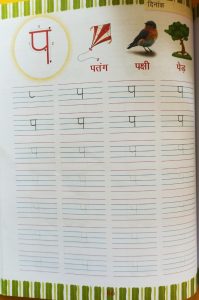 दिनांक
प
पतंग पक्षी पेड़
प प प
प प प प
प प प प
प प प प
प प प प
प प प प